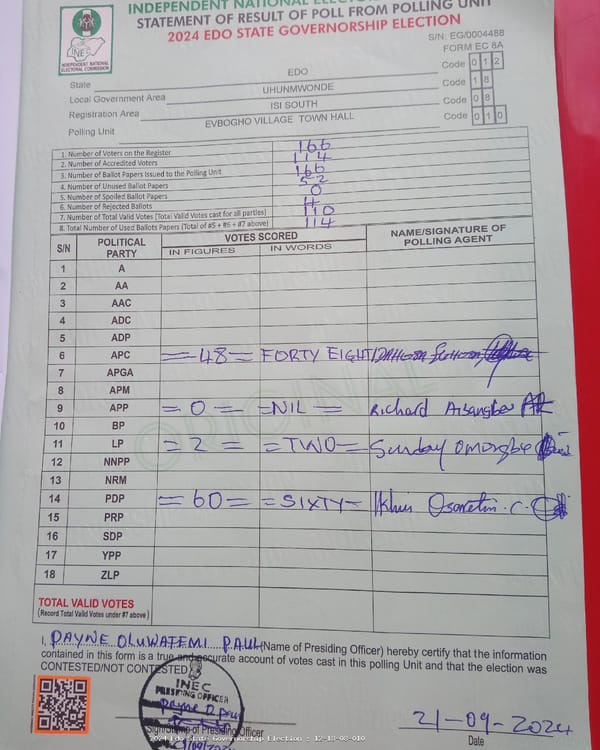 INDEPENDENT NATIONAL
STATEMENT OF RESULT OF POLL FROM POLLING UNIT
2024 EDO STATE GOVERNORSHIP ELECTION
S/N: EG/0004488
FORM EC 8A
INEC
INDEPENDENT NATIONAL ELECTORAL COMMISSION
State EDO Code 0 1 2
Local Government Area UHUNMWONDE Code 1 8
Registration Area ISI SOUTH Code 0 8
Polling Unit EVBOGHO VILLAGE TOWN HALL Code 0 1 0
1. Number of Voters on the Register 166
2. Number of Accredited Voters 114
3. Number of Ballot Papers Issued to the Polling Unit 166
4. Number of Unused Ballot Papers 52
5. Number of Spoiled Ballot Papers 0
6. Number of Rejected Ballots 4
7. Number of Total Valid Votes (Total Valid Votes cast for all parties) 110
8. Total Number of Used Ballots Papers (Total of #5 + #6 + #7 above) 114
S/N POLITICAL PARTY VOTES SCORED NAME/SIGNATURE OF POLLING AGENT
IN FIGURES IN WORDS
1 A
2 AA
3 AAC
4 ADC
5 ADP
6 APC =48= FORTY EIGHT
7 APGA
8 APM
9 APP =0= =NIL= Richard
10 BP
11 LP =2= =TWO= Sunday
12 NNPP
13 NRM
14 PDP =60= =SIXTY=
15 PRP
16 SDP
17 YPP
18 ZLP
ORIGINAL
TOTAL VALID VOTES
(Record Total Valid Votes under #7 above)
I, PAYNE OLUWAFEMI PAUL (Name of Presiding Officer) hereby certify that the information
contained in this form is a true and accurate account of votes cast in this polling Unit and that the election was
CONTESTED/NOT CONTESTED
INEC
PRESIDING OFFICER
Signature of Presiding Officer
21-09-2024
Date
2024 Edo State Governorship Election : 12-18-08-010